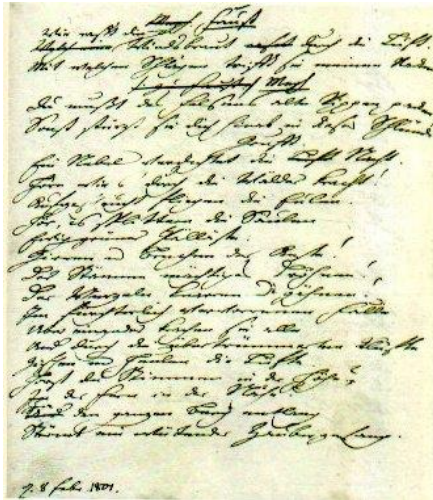 Faust
Wie rast die
Windsbraut durch die Luft.
Mit welchen Schlägen trifft sie meinen Nacken
Meph
Du mußt des Felsens alte Rippen packen
Sonst stürzt sie dich hinab in dieser Schlünde
Gruft.
Ein Nebel verdichtet die Nacht.
Höre wie's durch die Wälder kracht!
Aufgescheucht fliegen die Eulen.
Hör, es splittern die Säulen
Ewig grüner Palläste.
Girren u Brechen der Aeste!
Der Stämme mächtiges Dröhnen!
Der Wurzeln Knarren u Gähnen!
Im fürchterlich verworrenen Falle
Uber einander krachen sie alle
Und durch die übertrümmerten Klüfte
Zischen und heulen die Lüfte
Hörst du Stimmen in der Höhe?
In der Ferne in der Nähe?
den ganzen Berg entlang
Strömt ein wütender Zaubergesang.
8 Febr. 1801.